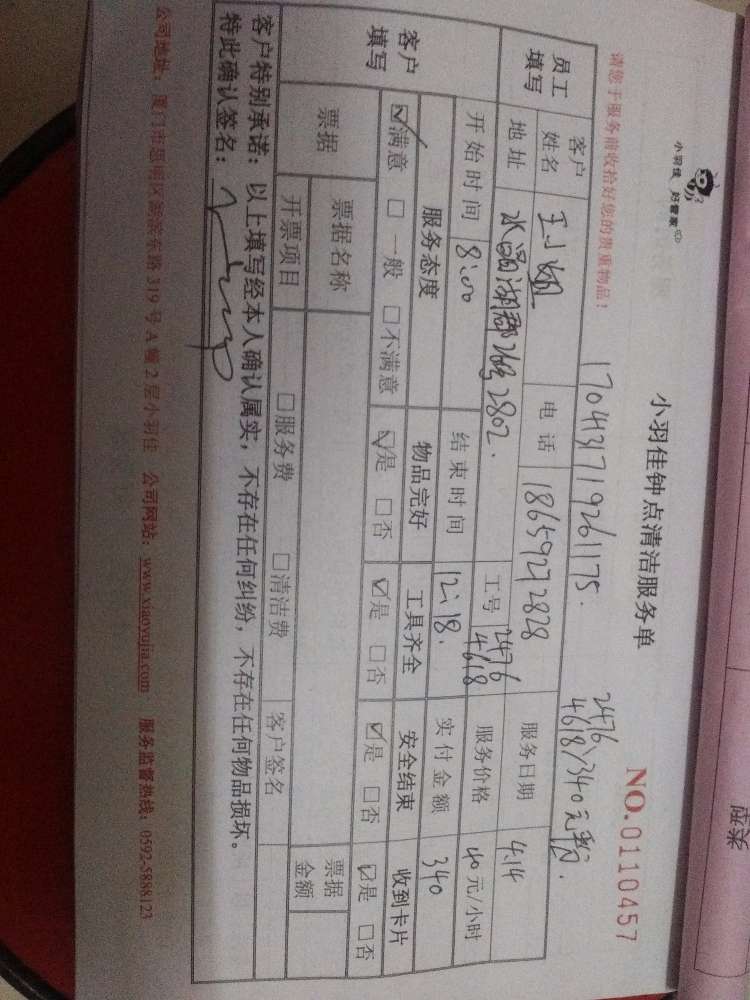 小羽佳 好管家
小羽佳钟点清洁服务单
NO.0110457
请您于服务前收拾好您的贵重物品!
170431719261175.
2476
4618 \340元整.
员工填写
客户姓名
电话
18659272828
工号
2476
4618
服务日期
4.14
地址
水晶湖郡26号2802.
服务价格
40元/小时
开始时间
8:00
结束时间
12:18.
实付金额
340
客户填写
服务态度
物品完好
工具齐全
安全结束
收到卡片
☑满意 □一般 □不满意
☑是 □否
☑是 □否
☑是 □否
☑是 □否
票据
票据名称
票据金额
开票项目
□服务费 □清洁费
客户签名
客户特别承诺:以上填写经本人确认属实,不存在任何纠纷,不存在任何物品损坏。
特此确认签名:
公司地址:厦门市思明区湖滨东路319号A幢2层小羽佳 公司网站:www.xiaoyujia.com 服务监督热线:0592-5888123